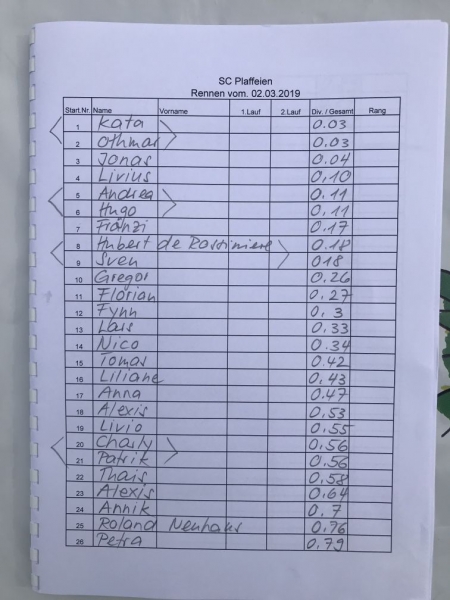 SC Plaffeien
Rennen vom. 02.03.2019
Start.Nr. Name Vorname 1.Lauf 2.Lauf Div. / Gesamt Rang
1 Kata 0.03
2 Othmar 0.03
3 Jonas 0.04
4 Livius 0,10
5 Andrea 0.11
6 Hugo 0,11
7 Fränzi 0.17
8 Hubert de 0.18
9 Sven 018
10 Gregor 0.26
11 Florian 0.27
12 Fynn 0, 3
13 Lars 0,33
14 Nico 0.34
15 Tomas 0.42
16 Liliane 0,43
17 Anna 0.47
18 Alexis 0,53
19 Livio 0.55
20 Charly 0,56
21 Patrik 0.56
22 Thais 0,58
23 Alexis 0,64
24 Annik 0.7
25 Roland Neuhaus 0,76
26 Petra 0.79